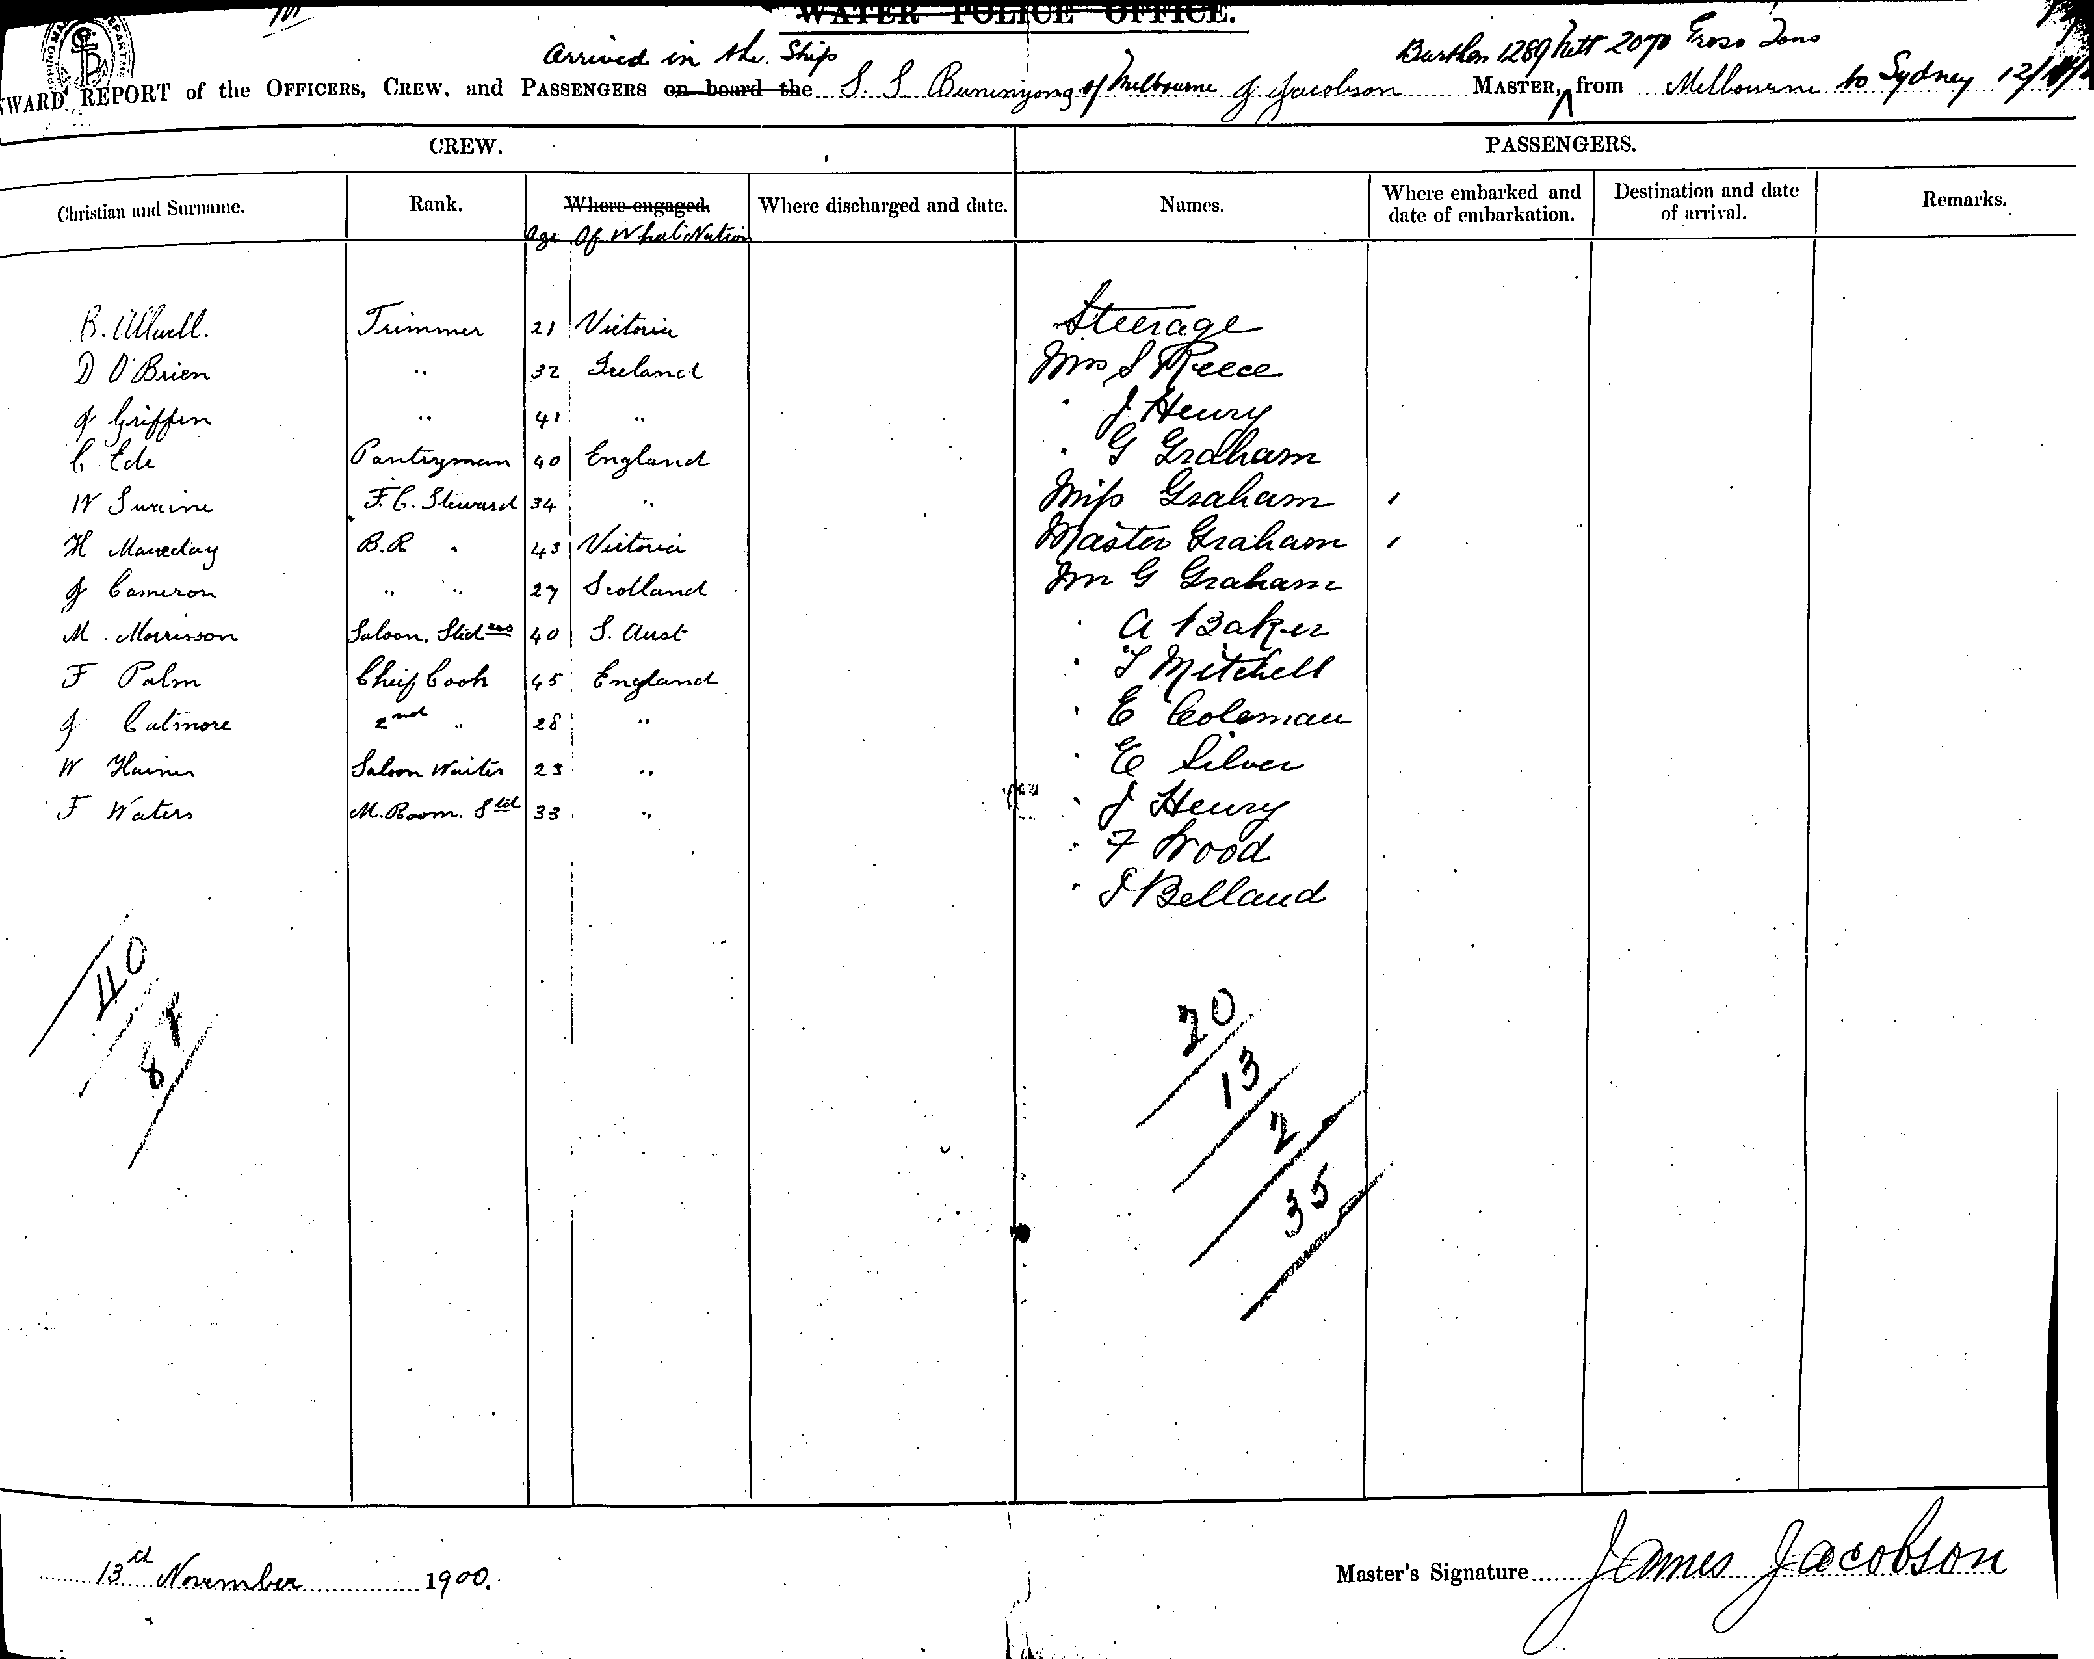 WATER POLICE OFFICE.
Arrived in the Ship
Burthen 1289 Nett 2070 Gross Tons
WARD REPORT of the OFFICERS, CREW, and PASSENGERS on board the S. S Buninyong of Melbourne J Jacobson MASTER, from Melbourne to Sydney 12/11/
CREW. PASSENGERS.
Christian and Surname. Rank. Where engaged. Where discharged and date. Names. Where embarked and date of embarkation. Destination and date of arrival. Remarks.
Age Of What Nation
Steerage
B. Allwell. Trimmer 21 Victoria
D O'Brien " 32 Ireland Mrs S Reece
J Griffin " 41 " " J Henry
C Ede Pantryman 40 England " G Graham
W Swaine F.C. Steward 34 " Miss Graham
H Maceday B.R " 43 Victoria Master Graham
J Cameron " " 27 Scotland Mr G Graham
M. Morrisson Saloon. Stdess 40 S. Aust " A Baker
F Palm Cheif Cook 45 England " T Mitchell
J Catmore 2nd " 28 " " E Coleman
W Haines Saloon Waiter 23 " " E Silver
F Waters M. Room. Std 33 " " J Henry
" F Wood
" J Belland
40
8
20
13
2
35
13rd November 1900.
Master's Signature James Jacobson